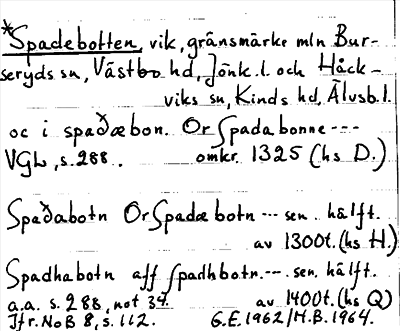 *Spadebotten, vik, gränsmärke mln Bur-
seryds sn, Västbo hd, Jönk.l. och Håck-
viks sn, Kinds hd, Älvsb.l.
oc i spaðæbon. Or spada bonne ---
VGL, s. 288. omkr. 1325 (hs D.)
Spaðabotn Or Spadæ botn --- sen. hälft.
av 1300t. (hs H.)
Spadhabotn aff spadhbotn. --- sen. hälft.
a.a. s. 288, not 34. av 1400t. (hs Q)
Jfr. NoB 8, s. 112. G.E. 1962/M.B. 1964.